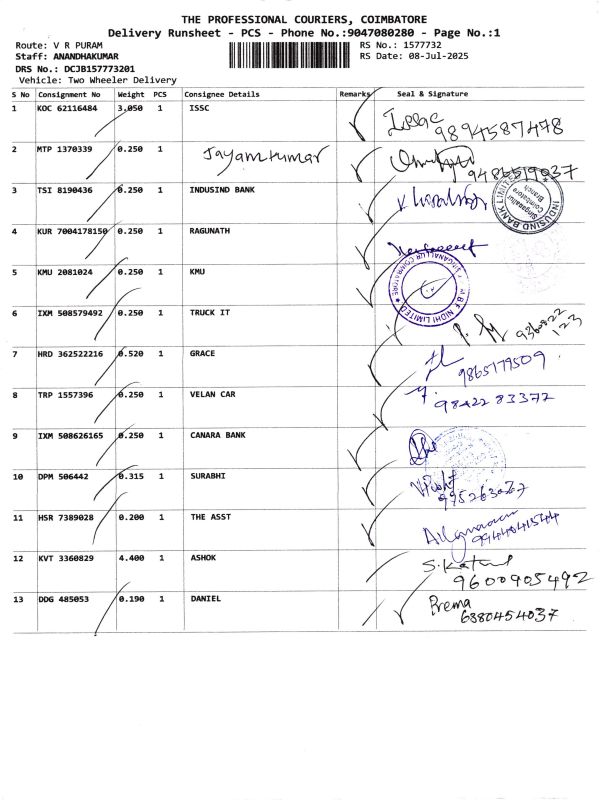 THE PROFESSIONAL COURIERS, COIMBATORE
Delivery Runsheet - PCS - Phone No.:9047080280 - Page No.:1
Route: V R PURAM RS No.: 1577732
Staff: ANANDHAKUMAR RS Date: 08-Jul-2025
DRS No.: DCJB157773201
Vehicle: Two Wheeler Delivery
S No Consignment No Weight PCS Consignee Details Remarks Seal & Signature
1 KOC 62116484 3.050 1 ISSC Issac
9894587478
2 MTP 1370339 0.250 1 Jayamkumar
9486519037
3 TSI 8190436 0.250 1 INDUSIND BANK
INDUSIND BANK LIMITED Singanallur Coimbatore Branch
4 KUR 7004178150 0.250 1 RAGUNATH
5 KMU 2081024 0.250 1 KMU
M.B.F NIDHI LIMITED SINGANALLUR COIMBATORE
6 IXM 508579492 0.250 1 TRUCK IT
7 HRD 362522216 0.520 1 GRACE
9865179509
8 TRP 1557396 0.250 1 VELAN CAR
98422 83377
9 IXM 508626165 0.250 1 CANARA BANK
10 DPM 506442 0.315 1 SURABHI
11 HSR 7389028 0.200 1 THE ASST
12 KVT 3360829 4.400 1 ASHOK
9600905492
13 DDG 485053 0.190 1 DANIEL Prema
6380454037